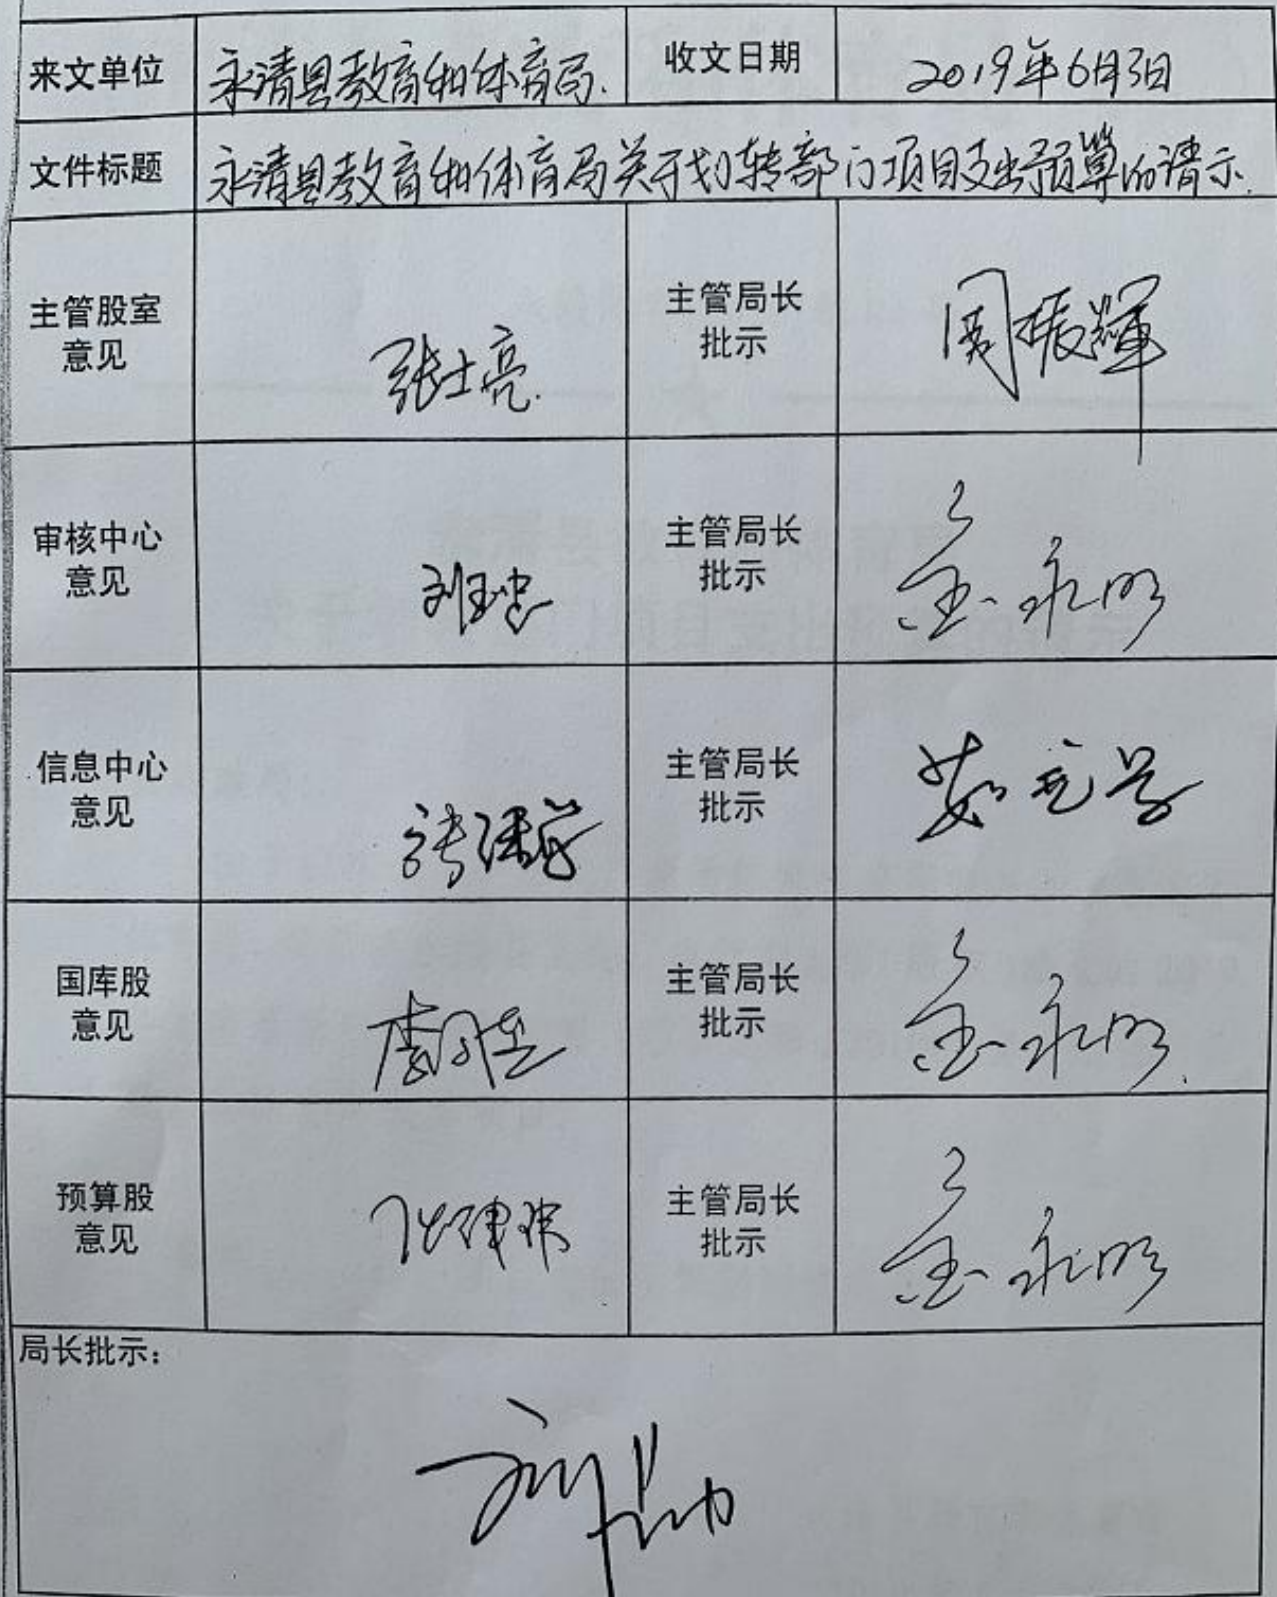 来文单位 永清县教育和体育局. 收文日期 2019年6月3日
文件标题 永清县教育和体育局关于划转部门项目支出预算的请示.
主管股室
意见
张士亮.
主管局长
批示
周振辉
审核中心
意见
主管局长
批示
永明
信息中心
意见
主管局长
批示
国库股
意见
主管局长
批示
永明
预算股
意见
主管局长
批示
永明
局长批示：